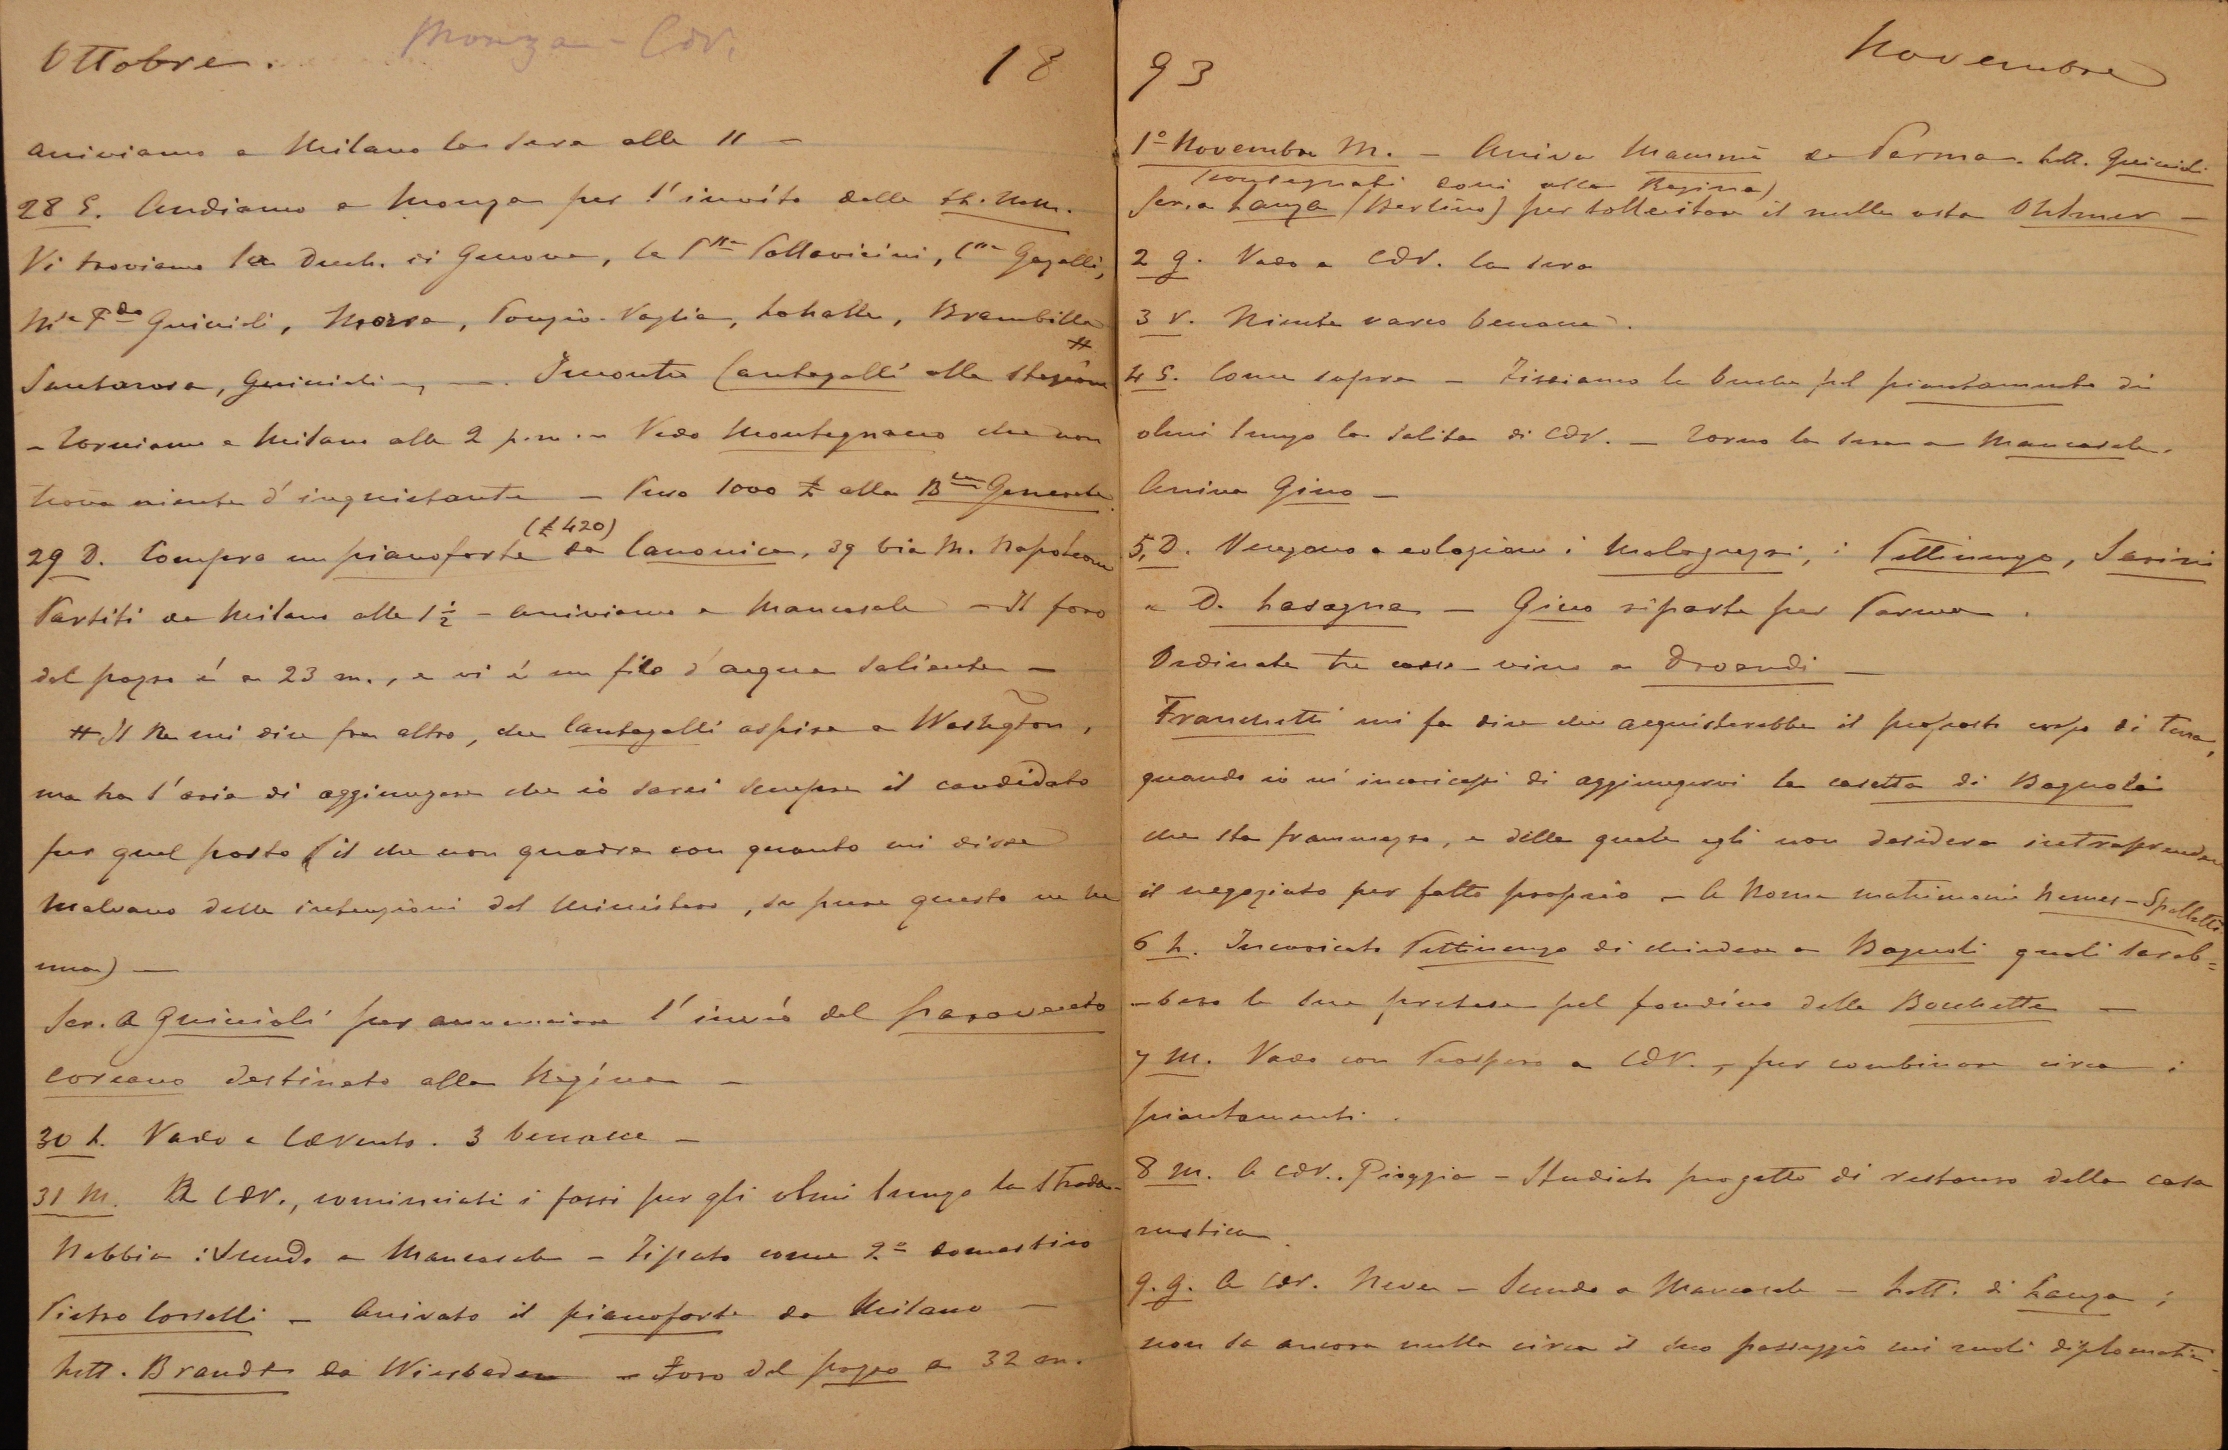 Ottobre.
Monza - CdV.
18
arriviamo a Milano la sera alle 11 —
28 S. Andiamo a Monza per l'invito delle LL. MM.
Vi troviamo la Duch. di Genova, la Pssa Pallavicini, Cssa Gazelli,
Ma Fda Guiccioli, Morra, Ponzio-Vaglia, Brambilla
Santarosa, Guiccioli —, —. Incontro Cantagalli alla stazione #
– Torniamo a Milano alle 2 p.m. – Vedo Montegnacco che non
trova niente d'inquietante — Preso 1000 £ alla Bca Generale.
29 D. Compro un pianoforte (£ 420) da Canonica, 39 via M. Napoleone
Partiti da Milano alle 1 1/2 – arriviamo a Mancasale — Il foro
del pozzo é a 23 m., e vi é un filo d'acqua saliente —
# Il Re mi dice fra altro, che Cantagalli aspira a Washgton,
ma ha l'aria di aggiungere che io sarei sempre il candidato
per quel posto (il che non quadra con quanto mi disse
Malvano delle intenzioni del Ministero, se pure questo ne ha
una) —
Scr. a Guiccioli per annunciare l'invio del paravento
coreano destinato alla Regina —
30 L. Vado a CdVento. 3 benacce —
31 M. A CdV., cominciati i fossi per gli olmi lungo la strada.
Nebbia: Scendo a Mancasale – Fissato come 2º domestico
Pietro Corselli — Arrivato il pianoforte da Milano —
Lett. Brandt da Wiesbaden — Foro del pozzo a 32 m.
93
Novembre
1º Novembre M. — Arriva Mammà da Parma. Lett. Guiccioli
(consegnati doni alla Regina)
Scr. a Lanza (Berlino) per sollecitare il nulla osta Ohlmer —
2 G. Vado a CdV. la sera
3 V. Niente varco benacce.
4 S. Come sopra — Fissiamo le buche pel piantamento di
olmi lungo la salita di CdV. — Torno la sera a Mancasale.
Arriva Gino —
5, D. Vengono a colazione i Malaguzzi, i Pettinengo, Sarini
e D. Lasagna — Gino riparte per Parma.
Ordinate tre casse vino a Droandi —
Franchetti mi fa dire che acquisterebbe il proposto corpo di terra,
quando io m'incaricassi di aggiungervi la casetta di Bagnoli
che sta frammezzo, e della quale egli non desidera intraprendere
il negoziato per fatto proprio — A Roma matrimonio Nemes-Spalletti
6 L. Incaricato Pettinengo di chiedere a Bagnoli quali sareb=
–bero le sue pretese pel fondino delle Bocchette —
7 M. Vado con Prospero a CdV., per combinare circa i
piantamenti.
8 M. A CdV. Pioggia – Studiato progetto di restauro della casa
rustica.
9. G. A CdV. Neve – Scendo a Mancasale – Lett. di Lanza;
non sa ancora nulla circa il suo passaggio nei ruoli diplomatici.